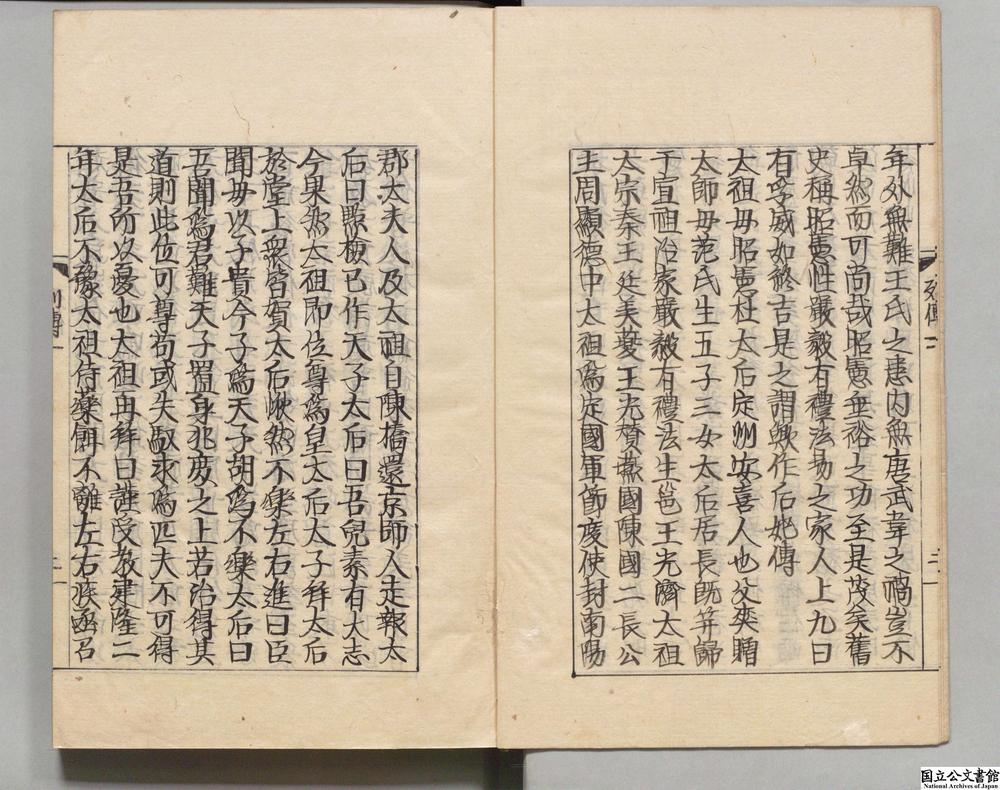 年外無難王氏之患内無唐武韋之禍豈不
卓然而可尚哉昭憲垂裕之功至是茂矣舊
史稱昭憲性嚴毅有禮法易之家人上九曰
有孚威如終吉是之謂歟作后妃傳
太祖母昭憲杜太后定州安喜人也父爽贈
太師母范氏生五子三女太后居長既笄歸
于宣祖治家嚴毅有禮法生邕王光濟太祖
太宗秦王廷美夔王光贊燕國陳國二長公
主周顯德中太祖為定國軍節度使封南陽
列傳一
二
郡太夫人及太祖自陳橋還京師人走報太
后曰點檢已作天子太后曰吾兒素有大志
今果然太祖即位尊為皇太后太子拜太后
於堂上衆皆賀太后愀然不樂左右進曰臣
聞母以子貴今子為天子胡為不樂太后曰
吾聞為君難天子置身兆庶之上若治得其
道則此位可尊苟或失馭求為匹夫不可得
是吾所以憂也太祖再拜曰謹受教建隆二
年太后不豫太祖侍藥餌不離左右疾亟召
列傳一
国立公文書館
National Archives of Japan